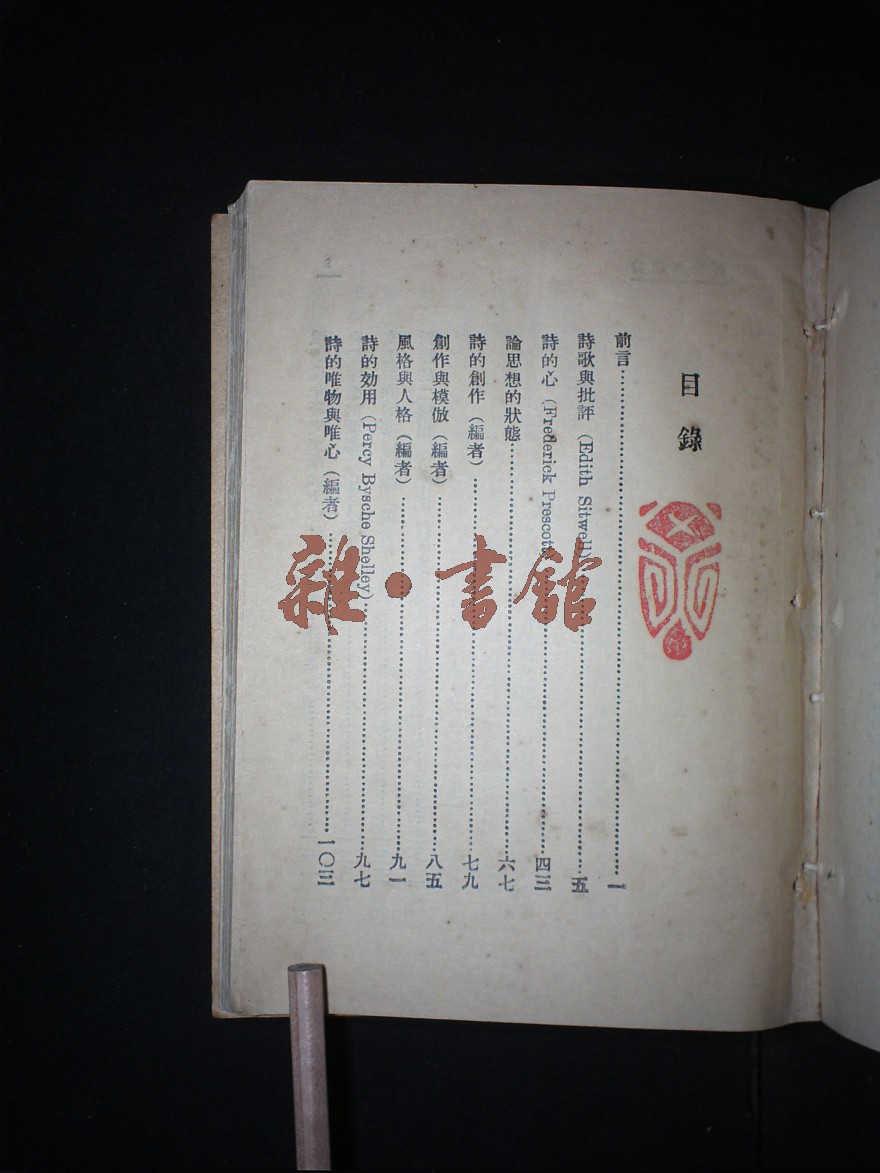 目錄
前言…………一
詩歌與批評（Edith Sitwell）…………五
詩的心（Frederick Prescott）…………四三
論思想的狀態…………六七
詩的創作（編者）…………七九
創作與模倣（編者）…………八五
風格與人格（編者）…………九一
詩的効用（Percy Bysche Shelley）…………九七
詩的唯物與唯心（編者）…………一〇三
雜·書館